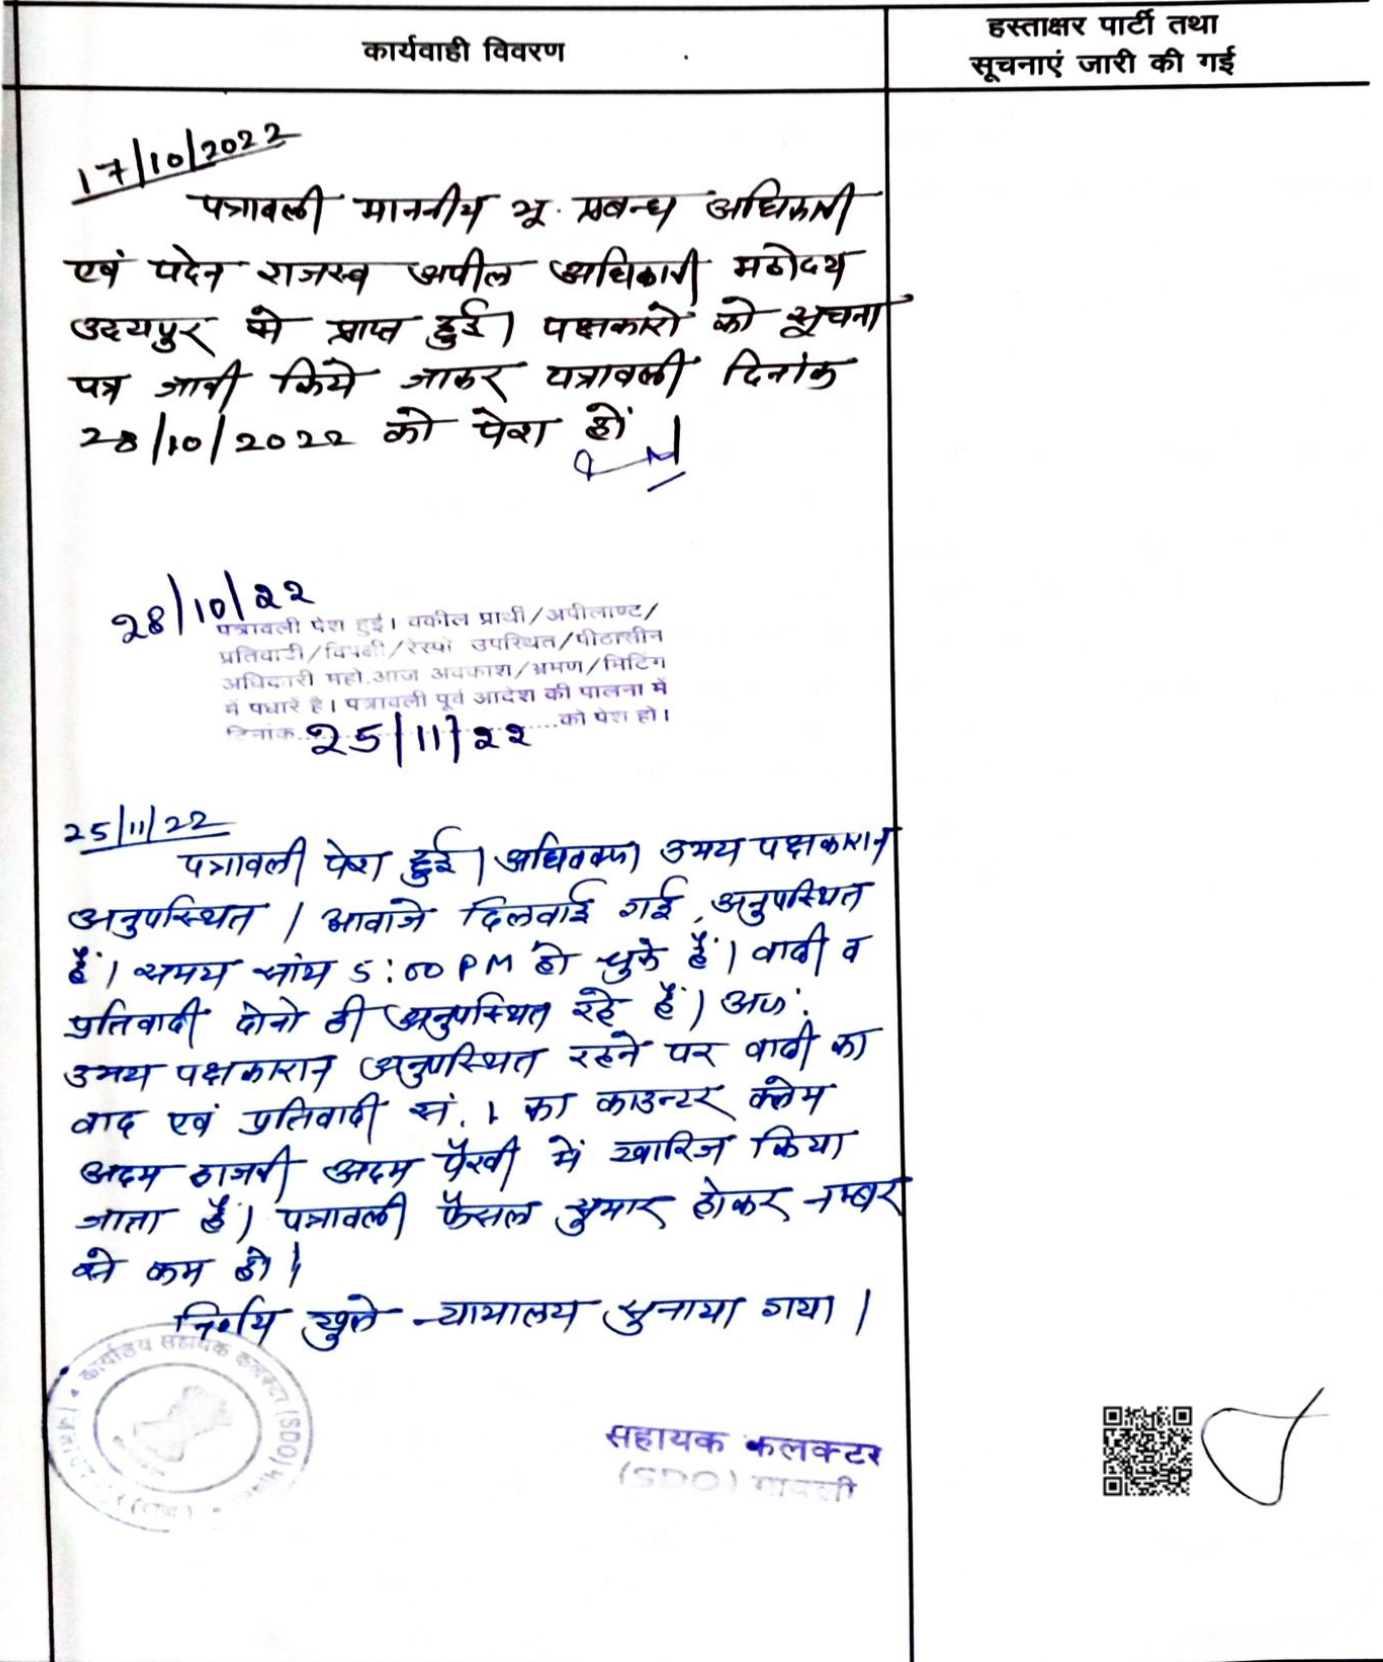 कार्यवाही विवरण
हस्ताक्षर पार्टी तथा
सूचनाएं जारी की गई
17/10/2022
पत्रावली माननीय भू. प्रबन्ध अधिकारी
एवं पदेन राजस्व अपील अधिकारी महोदय
उदयपुर से प्राप्त हुई। पक्षकारों को सूचना
पत्र जारी किये जाकर पत्रावली दिनांक
28/10/2022 को पेश हों
28/10/22
पत्रावली पेश हुई। वकील प्रार्थी/अपीलाण्ट/
प्रतिवादी/विपक्षी/रेस्पो उपस्थित/पीठासीन
अधिकारी महो.आज अवकाश/भ्रमण/मिटिंग
में पधारें है। पत्रावली पूर्व आदेश की पालना में
दिनांक 25/11/22 को पेश हो।
25/11/22
पत्रावली पेश हुई। अधिवक्ता उभय पक्षकारान
अनुपस्थित। आवाजे दिलवाई गई, अनुपस्थित
हैं। समय सांय 5:00 PM हो चुके हैं। वादी व
प्रतिवादी दोनो ही अनुपस्थित रहे हैं। अतः
उभय पक्षकारान अनुपस्थित रहने पर वादी का
वाद एवं प्रतिवादी सं. 1 का काउन्टर क्लेम
अदम हाजरी अदम पैरवी में खारिज किया
जाता हैं। पत्रावली फैसल शुमार होकर नम्बर
से कम हो।
निर्णय खुले न्यायालय सुनाया गया।
कार्यालय सहायक कलक्टर (SDO)
सहायक कलक्टर
(SDO) मावली